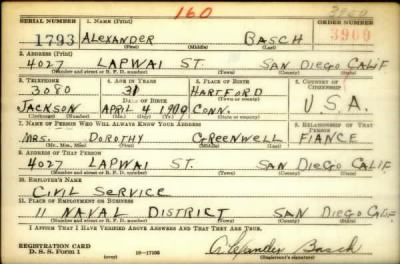 160
SERIAL NUMBER 1. NAME (Print) ORDER NUMBER
1793 ALEXANDER BASCH 3900
(First) (Middle) (Last)
2. ADDRESS (Print)
4027 LAPWAI ST. SAN DIEGO CALIF
(Number and street or R. F. D. number) (Town) (County) (State)
3. TELEPHONE 4. AGE IN YEARS 5. PLACE OF BIRTH 6. COUNTRY OF CITIZENSHIP
3080 31 HARTFORD
DATE OF BIRTH (Town or county)
JACKSON APRIL 4 1909 CONN. U.S.A.
(Exchange) (Number) (Mo.) (Day) (Yr.) (State or country)
7. NAME OF PERSON WHO WILL ALWAYS KNOW YOUR ADDRESS 8. RELATIONSHIP OF THAT PERSON
MRS. DOROTHY GREENWELL FIANCE
(Mr., Mrs., Miss) (First) (Middle) (Last)
9. ADDRESS OF THAT PERSON
4027 LAPWAI ST. SAN DIEGO CALIF
(Number and street or R. F. D. number) (Town) (County) (State)
10. EMPLOYER'S NAME
CIVIL SERVICE
11. PLACE OF EMPLOYMENT OR BUSINESS
11 NAVAL DISTRICT SAN DIEGO CALIF
(Number and street or R. F. D. number) (Town) (County) (State)
I AFFIRM THAT I HAVE VERIFIED ABOVE ANSWERS AND THAT THEY ARE TRUE.
REGISTRATION CARD
D. S. S. FORM 1 (over) 16—17105 Alexander Basch
(Registrant's signature)